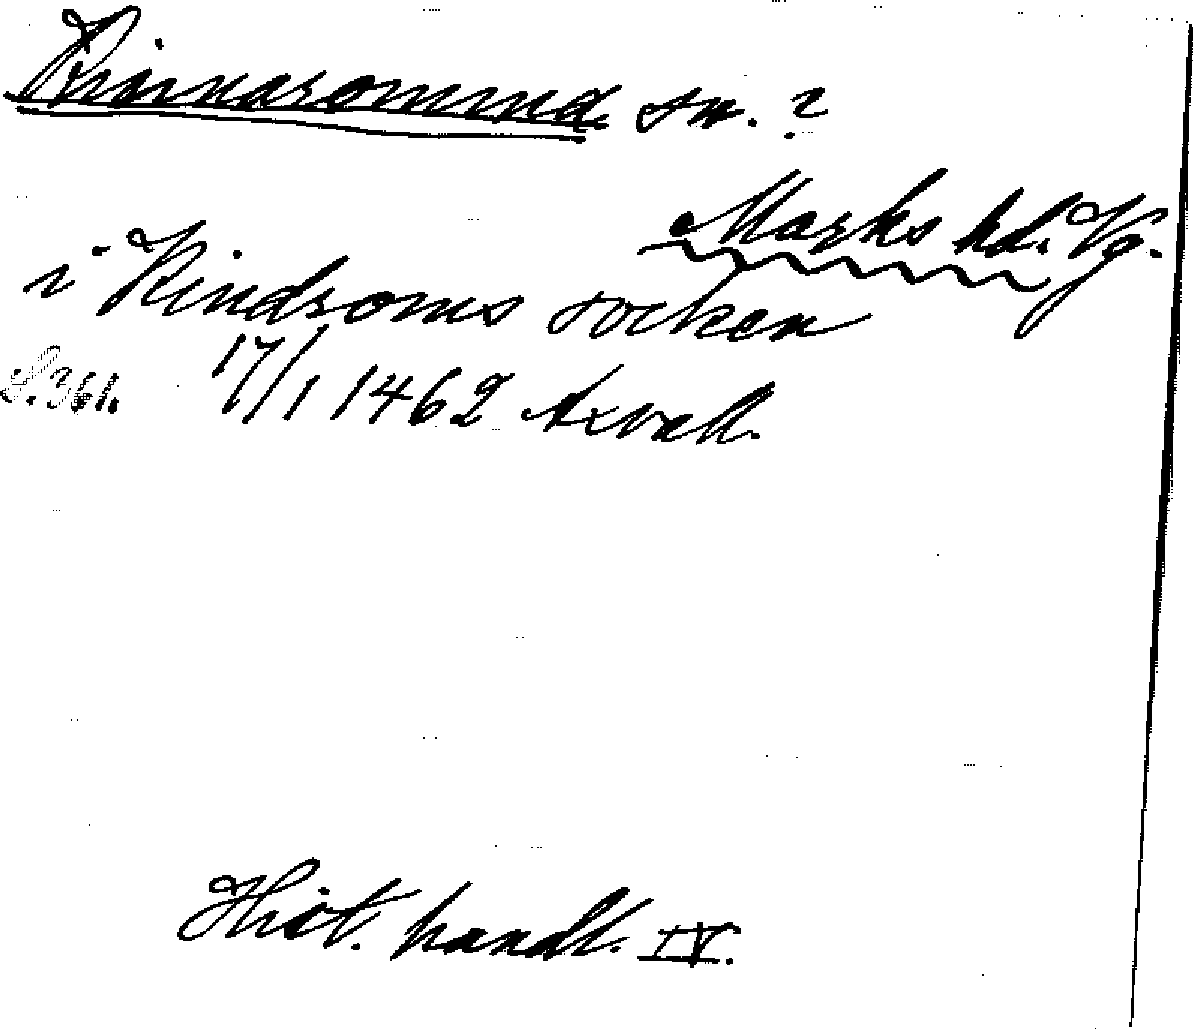 Kinnarommd sn. ?
Marks hd. Vg.
i Kindroms socken
S. 361. 17/1 1462 Axvall.
Hist. handl. IV.